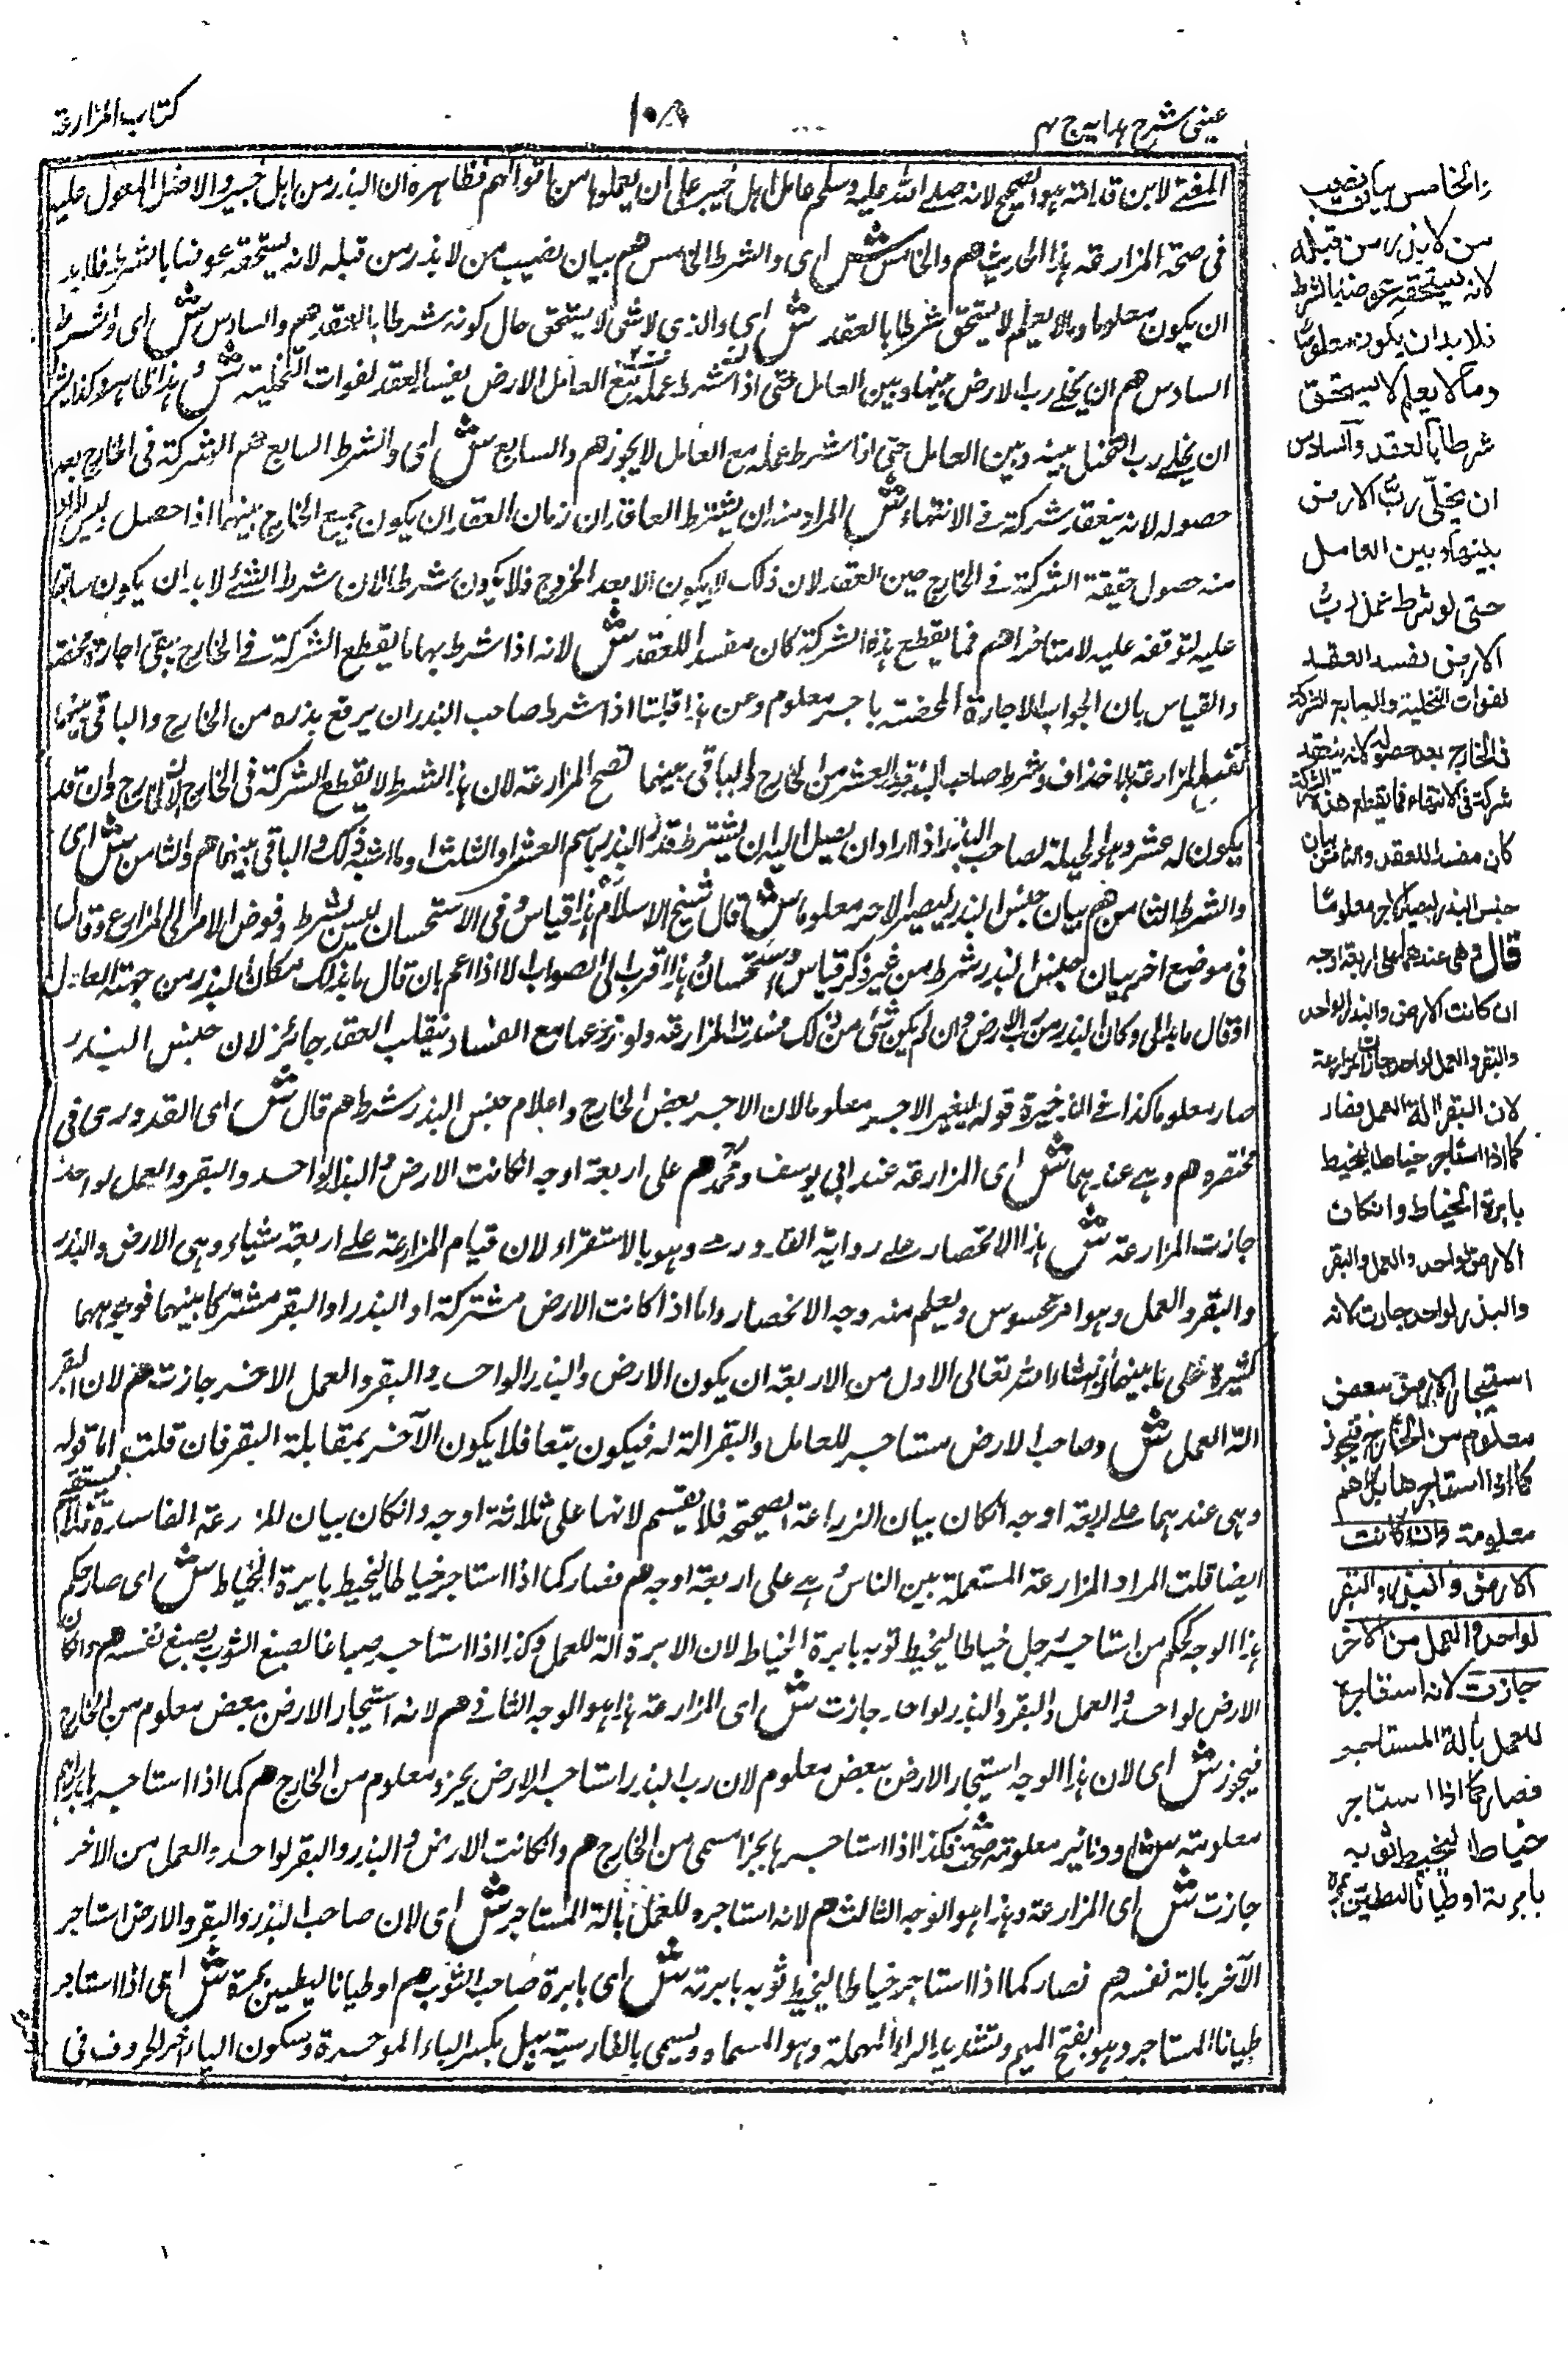 عینی شرح ہدایہ ج ۴
كتاب المزارعة
المغنے لابن قدامتہ ہو الصحیح لانہ صلے اللہ علیہ وسلم عامل اہل خیبر علی ان یعملوہا من اموالہم فظاہرہ ان البذر من اہل خیبر والاصل المعول علیہ
فی صحتہ المزارعتہ ہذا الحدیث هم والخامس ش ای والشرط الخامس هم بیان نصیب من لا بذر من قبلہ لانہ یستحقہ عوضا بالشرط فلا بد
ان یکون معلوما وما لا یعلم لا یستحق شرطا بالعقد ش ای والذی لا یستحق حال کونہ شرطا بالعقد هم والسادس ش ای والشرط
السادس هم ان یخلے رب الارض بینہا وبین العامل حتی اذا شرط عملہ مع العامل الارض یفسد العقد لفوات التخلیتہ ش ہذا ظاہر وکذا یشترط
ان یخلے رب النخل بینہ وبین العامل حتی اذا شرط عملہ مع العامل لا یجوز هم والسابع ش ای والشرط السابع هم الشرکتہ فی الخارج بعد
حصولہ لانہ ینعقد شرکتہ فے الانتہاء ش المراد منہ ان یشترط العاقدان زمان العقد ان یکون جمیع الخارج بینہما اذا حصل ولیس المراد
منہ حصول حقیقتہ الشرکتہ فے الخارج حین العقد لان ذلک لا یکون الا بعد الخروج فلا یکون شرطا لان شرط الشئے لا بد ان یکون سابقا
علیہ لتوقفہ علیہ لا متاخرا هم فما یقطع ہذہ الشرکتہ کان مفسدا للعقد ش لانہ اذا شرط بہا ما یقطع الشرکتہ فے الخارج یبقی اجارة محضتہ
والقیاس یان الجواب الاجارة المحضتہ باجر معلوم وعن ہذا قلنا اذا شرط صاحب البذر ان یرفع بذرہ من الخارج والباقی بینہما
تفسد المزارعتہ بلا خلاف وشرط صاحب البذر قدر العشر من الخارج والباقی بینہما تصح المزارعتہ لان ہذا الشرط لا یقطع الشرکتہ فی الخارج لان الخارج وان قل
یکون لہ عشر وہو الحیلتہ لصاحب البذر اذا اراد ان یصل الیہ ان یشترط قدر البذر باسم العشر او الثلث او ما اشبہ ذلک والباقی بینہما هم والثامن ش ای
والشرط الثامن هم بیان جنس البذر لیصیر الاجر معلوما ش قال شیخ الاسلام ہذا قیاس وفی الاستحسان لیس بشرط وفوض الامر الی المزارع وقال
فی موضع اخر بیان جنس البذر شرط من غیر ذکر قیاس واستحسان وہذا اقرب الی الصواب الا اذا عم بان قال ما بدا لک مکان البذر من جہتہ العامل
او قال ما بدا لی وکان البذر من رب الارض وان لم یکن شئی من ذلک فسدت المزارعتہ ولو زرعہا مع الفساد ینقلب العقد جائز لان جنس البذر
صار معلوما کذا فے الذخیرة قولہ لیصیر الاجر معلوما لان الاجر بعض الخارج واعلام جنس البذر شرط هم قال ش ای القدوری فی
مختصرہ هم وہے عندہما ش ای المزارعتہ عند ابی یوسف ومحمد هم علی اربعتہ اوجہ انکانت الارض والبذر لواحد والبقر والعمل لواحد
جازت المزارعتہ ش ہذا الانحصار علے روایتہ القدورے وہو بالاستقراء ولان قیام المزارعتہ علے اربعتہ اشیاء وہی الارض والبذر
والبقر والعمل وہو امر محسوس ویعلم منہ وجہ الانحصار واما اذا کانت الارض مشترکتہ او البذر او البقر مشترکا بینہما فوجوہہا
کثیرة علی ما نبینہا انشاء اللہ تعالی الاول من الاربعتہ ان یکون الارض والبذر لواحد والبقر والعمل الاخر جازت هم لان البقر
التہ العمل ش وصاحب الارض مستاجر للعامل والبقر التہ لہ فیکون تبعا فلا یکون الآخر بمقابلتہ البقر فان قلت اما قولہ
وہی عندہما علے اربعتہ اوجہ انکان بیان الزراعتہ الصحیحتہ فلا یستقیم لانہا علی ثلاثتہ اوجہ وانکان بیان المزارعتہ الفاسدة
ایضا قلت المراد المزارعتہ المستعملتہ بین الناس ہے علی اربعتہ اوجہ هم فصار کما اذا استاجر خیاطا لیخیط بابرة الخیاط ش ای صار حکم
ہذا الوجہ کحکم من استاجر رجل خیاطا لیخیط ثوبہ بابرة الخیاط لان الابرة التہ للعمل وکذا اذا استاجر صباغا لصبغ الثوب بصبغ نفسہ هم وانکان
الارض لواحد والعمل والبقر والبذر لواحد جازت ش ای المزارعتہ ہذا ہو الوجہ الثانے هم لانہ استیجار الارض ببعض معلوم من الخارج
فیجوز ش ای لان ہذا الوجہ استیجار الارض ببعض معلوم لان رب البذر استاجر الارض بجزء معلوم من الخارج هم کما اذا استاجرہا بدراہم
معلومتہ ش او دنانیر معلومتہ صحت فکذا اذا استاجرہا بجزء مسمی من الخارج هم وانکانت الارض والبذر والبقر لواحد والعمل من الاخر
جازت ش ای المزارعتہ وہذا ہو الوجہ الثالث هم لانہ استاجرہ للعمل بالتہ المستاجر ش ای لان صاحب البذر والبقر والارض استاجر
الآخر بالتہ نفسہ هم فصار کما اذا استاجر خیاطا لیخیط ثوبہ بابرتہ ش ای بابرة صاحب الثوب هم او طیانا لیطین بمرة ش ای اذا استاجر
طیانا المستاجر وہو بفتح المیم وتشدید الراء المہملتہ وہو المسماہ ویسمی بالفارسیتہ بیل بکسر الباء الموحدة وسکون الیاء آخر الحروف فی
والخامس بیان نصیب
من لا بذر من قبله
لانه یستحقه عوضا بالشرط
فلا بد ان یکون معلوما
وما لا یعلم لا یستحق
شرطا بالعقد والسادس
ان یخلّی ربّ الارض
بینها وبین العامل
حتی لو شرط عمل ربّ
الارض یفسد العقد
لفوات التخلیة والسابع الشرکة
فی الخارج بعد حصوله لانه ینعقد
شرکة فی الانتهاء فما یقطع هذه الشرکة
کان مفسدا للعقد والثامن بیان
جنس البذر لیصیر الاجر معلوما
قال وهی عندهما علی اربعة اوجه
ان کانت الارض والبذر لواحد
والبقر والعمل لواحد جازت المزارعة
لان البقر الة العمل فصار
کما اذا استاجر خیاطا لیخیط
بابرة الخیاط وانکان
الارض لواحد والعمل والبقر
والبذر لواحد جازت لانه
استیجار الارض ببعض
معلوم من الخارج فیجوز
کما اذا استاجرها بدراهم
معلومة وان کانت
الارض والبذر والبقر
لواحد والعمل من الآخر
جازت لانه استاجره
للعمل بآلة المستاجر
فصار کما اذا استاجر
خیاطا لیخیط ثوبه
بابرته او طیانا لیطین بمره